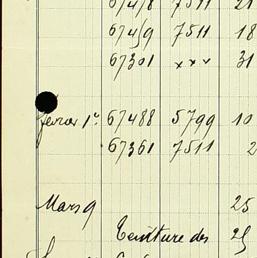 67418 7511 21
67419 7511 18
67301 xxx 31
fevrier 1er 67488 5799 10
67361 7511 2
Mars 9 25
Ceinture des 25